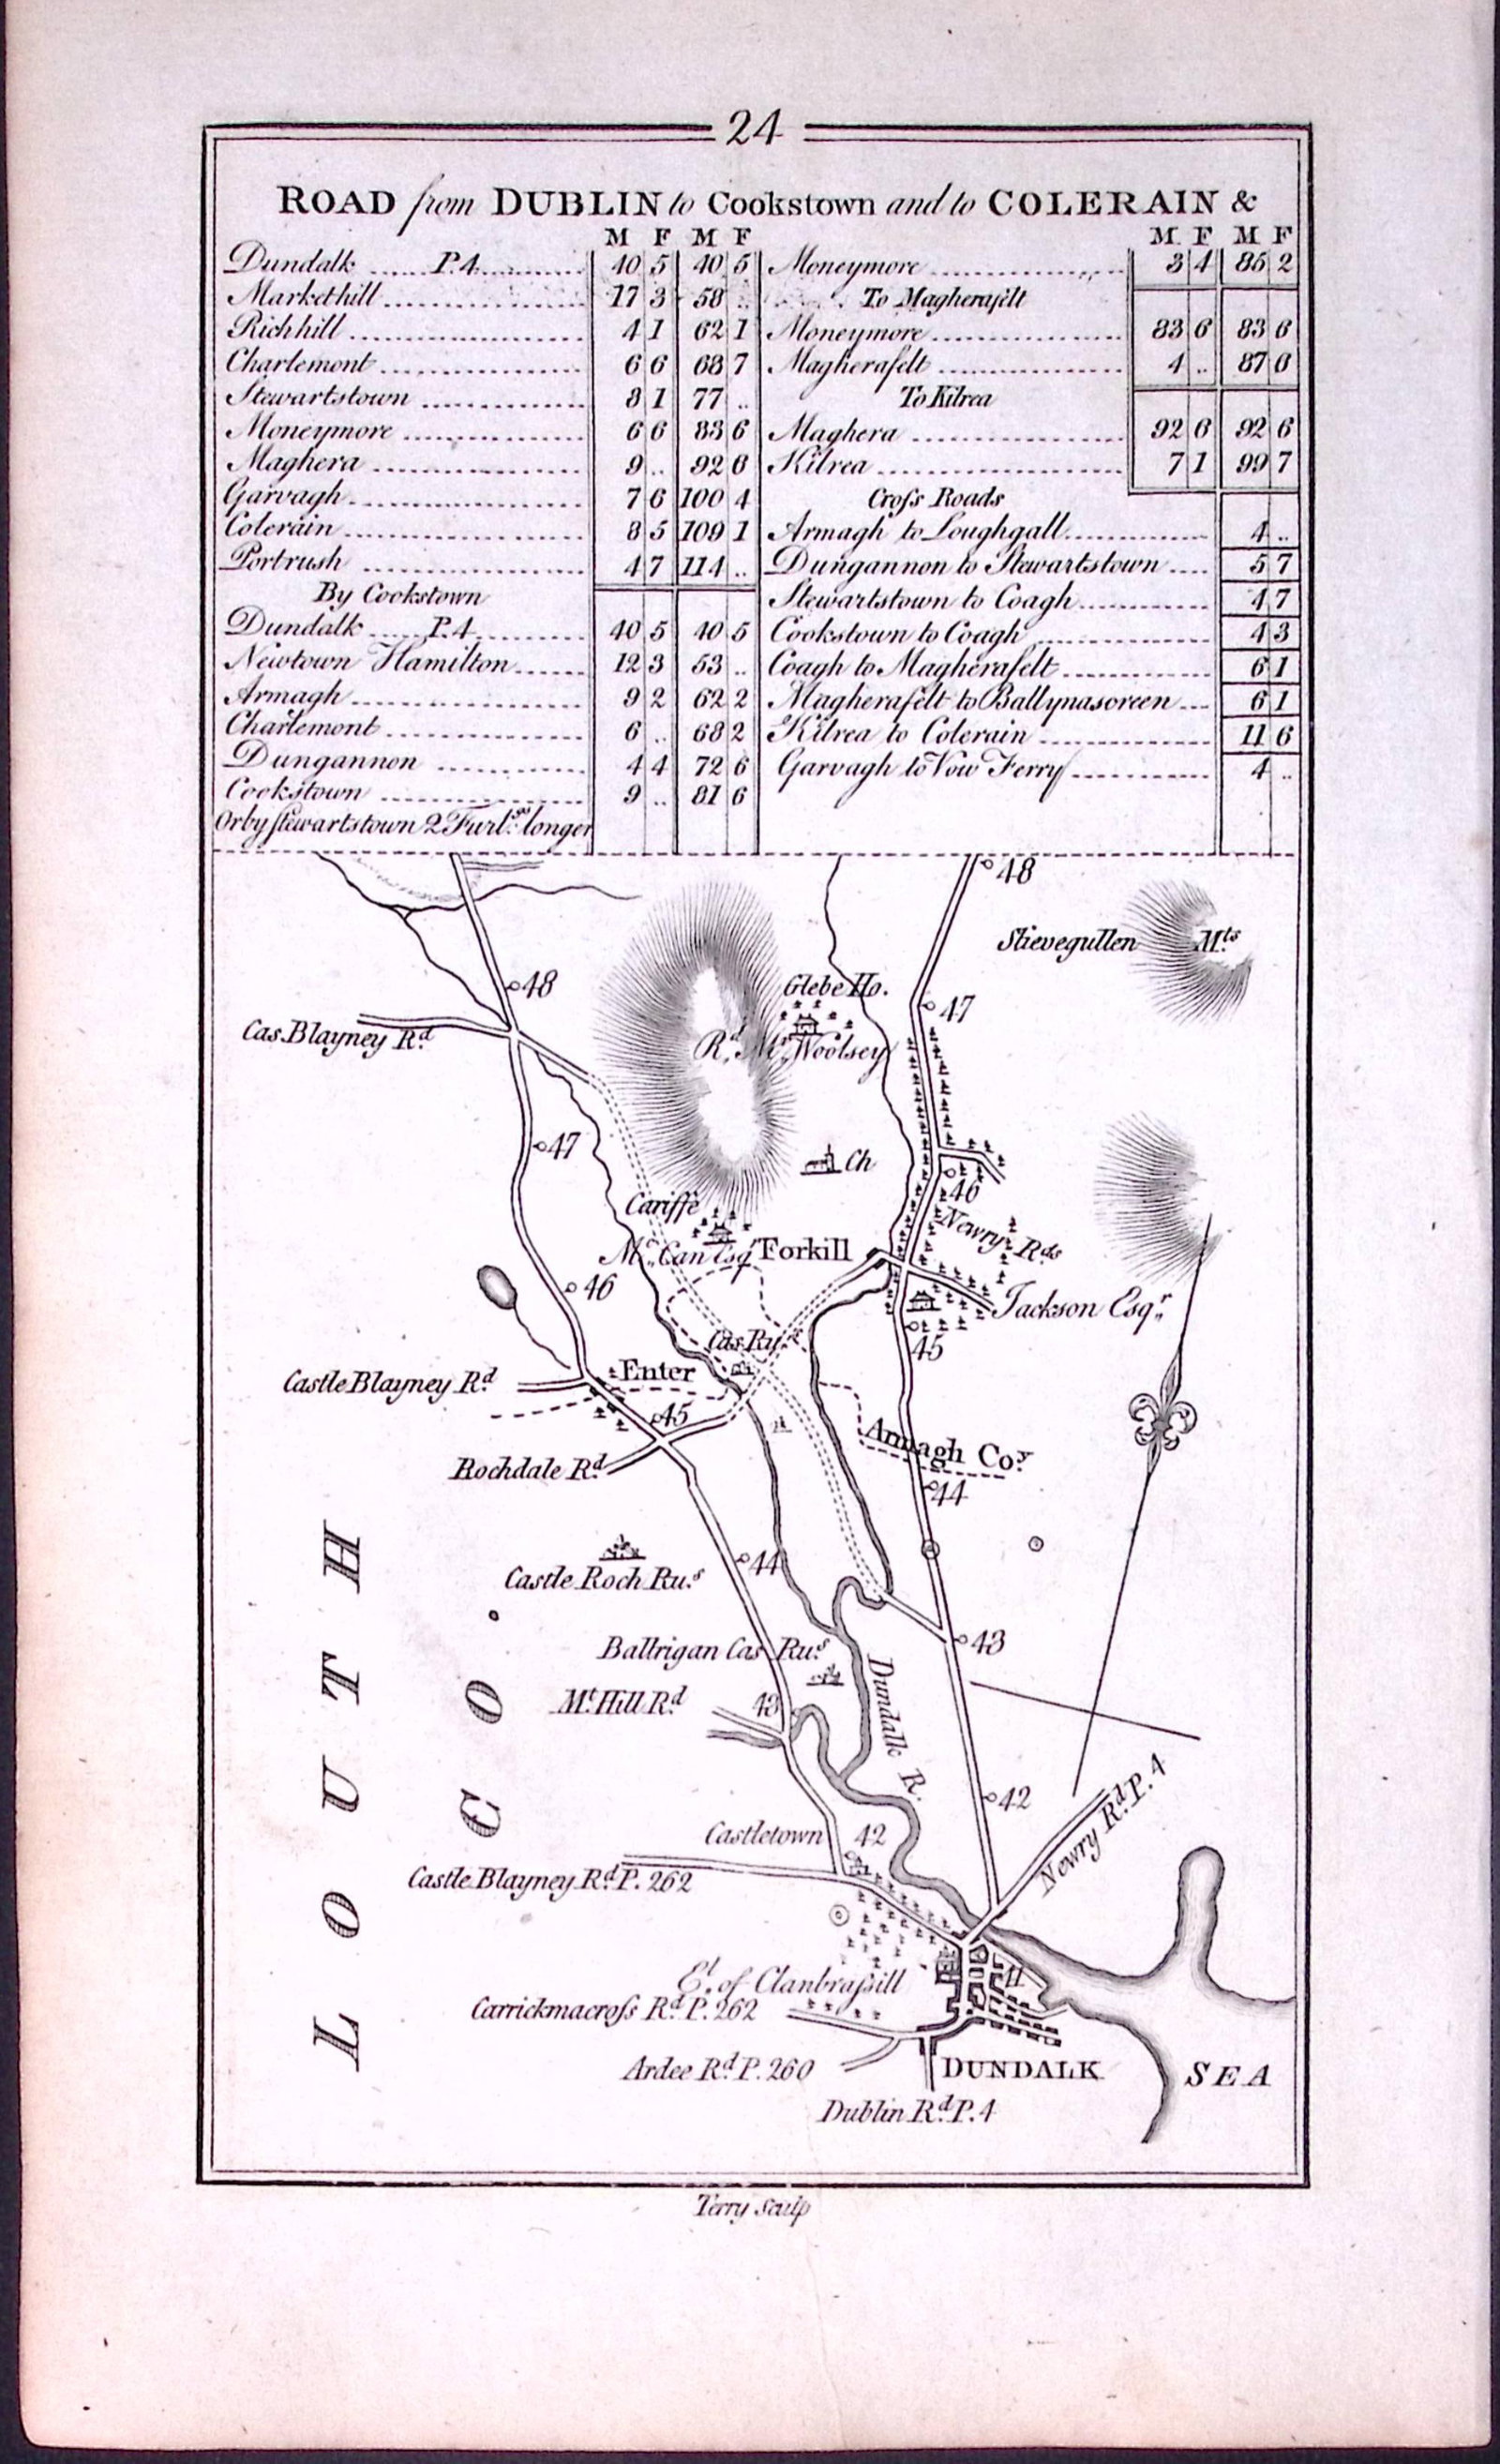 24
ROAD from DUBLIN to Cookstown and to COLERAIN &
M F M F
Dundalk ...... P.4 ...... 40 5 40 5
Markethill ...... 17 3 58 ..
Richhill ...... 4 1 62 1
Charlemont ...... 6 6 68 7
Stewartstown ...... 8 1 77 ..
Moneymore ...... 6 6 83 6
Maghera ...... 9 .. 92 6
Garvagh ...... 7 6 100 4
Colerain ...... 8 5 109 1
Portrush ...... 4 7 114 ..
By Cookstown
Dundalk ...... P.4 ...... 40 5 40 5
Newtown Hamilton ...... 12 3 53 ..
Armagh ...... 9 2 62 2
Charlemont ...... 6 .. 68 2
Dungannon ...... 4 4 72 6
Cookstown ...... 9 .. 81 6
Or by Stewartstown 2 Furl.gs longer
M F M F
Moneymore ...... 3 4 85 2
To Magherafelt
Moneymore ...... 83 6 83 6
Magherafelt ...... 4 .. 87 6
To Kilrea
Maghera ...... 92 6 92 6
Kilrea ...... 7 1 99 7
Cross Roads
Armagh to Loughgall ...... 4 ..
Dungannon to Stewartstown .... 5 7
Stewartstown to Coagh ...... 4 7
Cookstown to Coagh ...... 4 3
Coagh to Magherafelt ...... 6 1
Magherafelt to Ballynascreen ... 6 1
Kilrea to Colerain ...... 11 6
Garvagh to Vow Ferry ...... 4 ..
48
Slievegullen Mts
48
Glebe Ho.
47
Cas. Blayney Rd
Rd. Mr. Woolsey
47
Ch
46
Cariffe
Newry Rds
Mc. Can Esqr
Forkill
46
Jackson Esqr.
Cas. Ru.s
45
Castle Blayney Rd
Enter
45
Armagh Coy.
Rochdale Rd
44
44
Castle Roch Ru.s
43
Ballrigan Cas Ru.s
Mt. Hill Rd
43
Dundalk R.
42
Newry Rd P. 4
Castletown
42
Castle Blayney Rd P. 262
El. of Clanbrassill
Carrickmacross Rd P. 262
Ardee Rd P. 260
DUNDALK
SEA
Dublin Rd P. 4
LOUTH
CO.
Terry Sculp